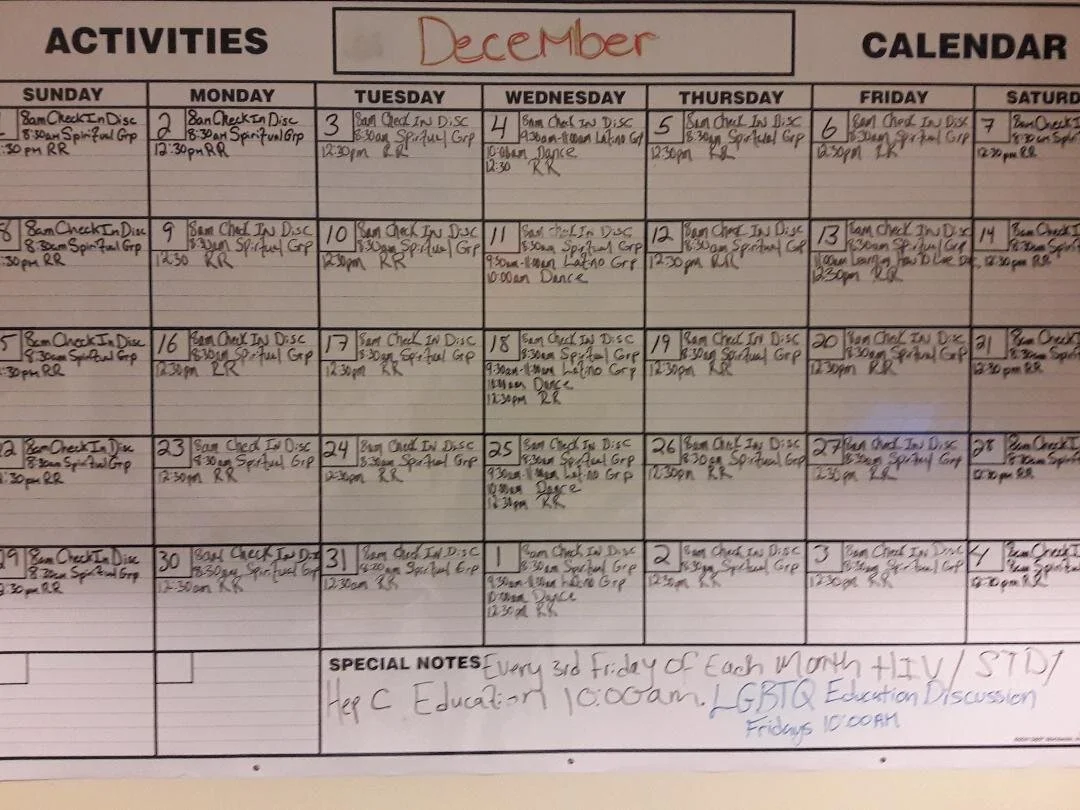 ACTIVITIES December CALENDAR
SUNDAY MONDAY TUESDAY WEDNESDAY THURSDAY FRIDAY SATURD
8am Check In Disc
8:30am Spiritual Grp
:30 pm RR
2 8am Check In Disc
8:30am Spiritual Grp
12:30pm RR
3 8am Check In Disc
8:30am Spiritual Grp
12:30pm RR
4 8am Check In Disc
9:30am-11:00am Latino Grp
10:00am Dance
12:30 RR
5 8am Check In Disc
8:30am Spiritual Grp
12:30pm RR
6 8am Check In Disc
8:30am Spiritual Grp
12:30pm RR
7 8am Check I
8:30am Spiri
12:30pm RR
8 8am Check In Disc
8:30am Spiritual Grp
:30pm RR
9 8am Check In Disc
8:30am Spiritual Grp
12:30 RR
10 8am Check In Disc
8:30am Spiritual Grp
12:30pm RR
11 8am Check In Disc
8:30am Spiritual Grp
9:30am-11:00am Latino Grp
10:00am Dance
12 8am Check In Disc
8:30am Spiritual Grp
12:30pm RR
13 8am Check In Disc
8:30am Spiritual Grp
Learning How To Live
12:30pm RR
14 8am Check I
8:30am Spirit
12:30pm RR
5 8am Check In Disc
8:30am Spiritual Grp
:30pm RR
16 8am Check In Disc
8:30am Spiritual Grp
12:30pm RR
17 8am Check In Disc
8:30am Spiritual Grp
12:30pm RR
18 8am Check In Disc
8:30am Spiritual Grp
9:30am-11:00am Latino Grp
Dance
12:30pm RR
19 8am Check In Disc
8:30am Spiritual Grp
12:30pm RR
20 8am Check In Disc
8:30am Spiritual Grp
12:30pm RR
21 8am Check I
8:30am Spirit
12:30pm RR
22 8am Check In Disc
8:30am Spiritual Grp
:30pm RR
23 8am Check In Disc
8:30am Spiritual Grp
12:30pm RR
24 8am Check In Disc
8:30am Spiritual Grp
12:30pm RR
25 8am Check In Disc
8:30am Spiritual Grp
9:30am-11:00am Latino Grp
10:00am Dance
12:30pm RR
26 8am Check In Disc
8:30am Spiritual Grp
12:30pm RR
27 8am Check In Disc
8:30am Spiritual Grp
12:30pm RR
28 8am Check I
8:30am Spirit
12:30pm RR
29 8am Check In Disc
8:30am Spiritual Grp
2:30pm RR
30 8am Check In Disc
8:30am Spiritual Grp
12:30am RR
31 8am Check In Disc
8:30am Spiritual Grp
12:30am RR
1 8am Check In Disc
8:30am Spiritual Grp
9:30am-11:00am Latino Grp
10:00am Dance
12:30pm RR
2 8am Check In Disc
8:30am Spiritual Grp
12:30pm RR
3 8am Check In Disc
8:30am Spiritual Grp
12:30pm RR
4 8am Check I
Spirit
12:30pm RR
SPECIAL NOTES Every 3rd Friday Of Each Month HIV/STD/
Hep C Education 10:00am. LGBTQ Education Discussion
Fridays 10:00AM